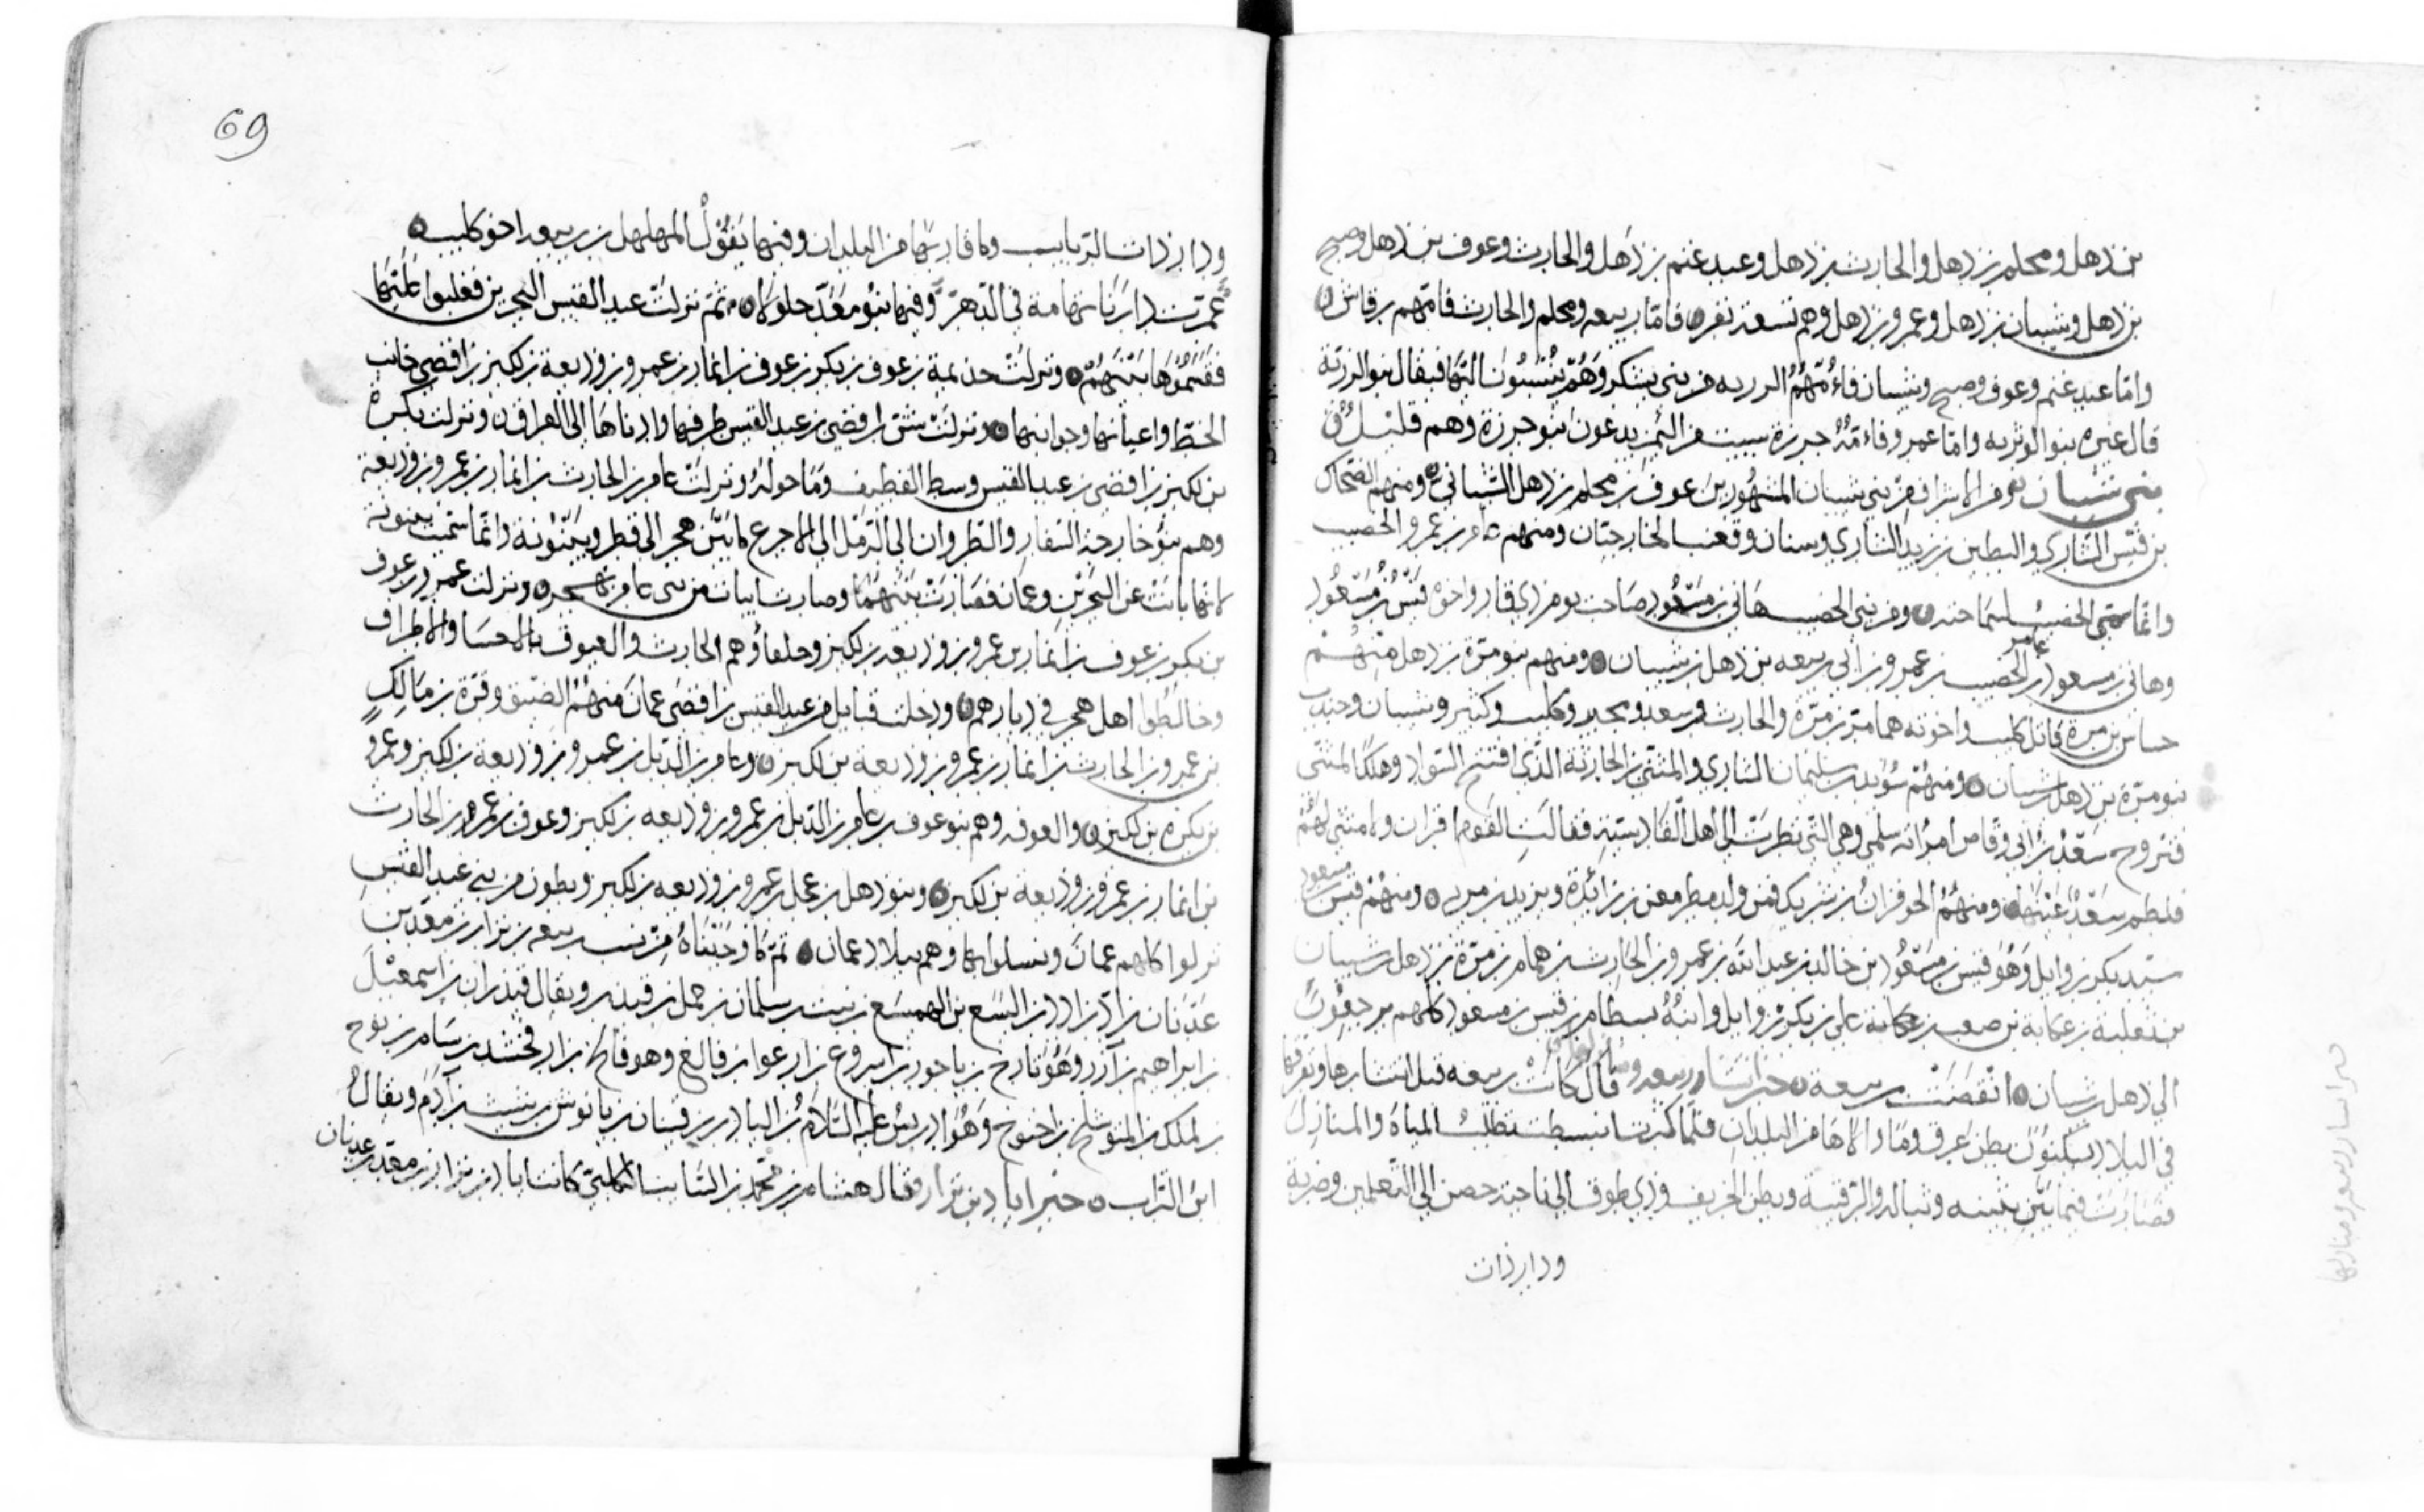 بن ذهل ومحلم بن ذهل والحارث بن ذهل وعبد غنم بن ذهل والحارث وعوف بن ذهل وصبح
بن ذهل وشيبان بن ذهل وعمرو بن ذهل وهم تسعة نفر فامّا ربيعه ومحلم والحارث فامّهم رقاش
وامّا عبد غنم وعوف وصبح وشيبان فاءُمّهُمُ الورثه من بني يشكر وَهُمْ يُنْسَبُونَ اليَها فيقال بنو الورثة
قال غيره بنو الوثريه وامّا عمرو فاءمّهُ جرزة سبيت من اليمن يدعون بنو جرزة وهم قليلُ
بني شيبان ومن الاشراف من بني شيبان المشهورين عوف بن محلم بن ذهل الشيباني ومنهم الضحاك
بن قيس الشاري والبطين بن زيد الشاري وسنان وقعنب الخارجيّان ومنهم عامر بن عمرو الخصيب
وانّما سمّي الخصيب لسماحته ومن بني الخصيب هاني بن مسعود صاحب يوم ذي قار واخوه قيس بن مسعود
وهاني بن مسعود بن عامر الخصيب بن عمرو بن ابي ربيعه بن ذهل بن شيبان ومنهم بنو مرّة بن ذهل منهم
جساس بن مرة قاتل كليب واخوته همام بن مرّة والحارث وسعد وبجير وكليب وكثير وشيبان وجندب
بنو مرّة بن ذهل بن شيبان ومنهم سويد بن سليمان الشاري والمثنى بن الحارثة الذي افتتح السواد وهلك المثنى
فتزوج سعد بن ابي وقاص امراته سلمى وهي التي نظرت الى اهل القادسيّة فقالت القوم اقران ولا مثنى لهم
فلطم سعد عينها ومنهم الحوفزان بن شريك فمن ولده مطر معن بن زائدة ويزيد بن مزيد ومنهم قيس بن مسعود
سيد بكر بن وايل وهو قيس بن مسعود بن خالد بن عبد الله بن عمرو بن الحارث بن همام بن مرّة بن ذهل بن شيبان
بن ثعلبة بن عكابة بن صعب بن علي بن بكر بن وايل وابنه بسطام بن قيس بن مسعود كلهم يرجعون
الى ذهل بن شيبان انقضت ربيعة خبر انتشار ربيعه ومنازلها قال كانت ربيعه قبل انتشارها وتفرقها
في البلاد يسكنون بطن عرق وما والاها من البلدان فلمّا كثرت انبسطت تطلب المياه والمنازل
فصارت فيما بين بثينه وشباله والرقبة وبطن الخريف وذي طوق الى ناحية حصن الى التعلمين وضرية
ودار ذات
خبر انتشار ربيعه ومنازلها
69
ودار ذات الربايب وما قاربها من البلدان وفيها يقول المهلهل بن ربيعه اخو كليب
عمرت دارنا تهامة في الدهر وفيها بنو معدّ حلولا ثم نزلت عبد القيس البحرين فغلبوا عليها
فقسموها بينهم ونزلت جذيمة بن عوف بن بكر بن عوف بن انمار بن عمرو بن وديعة بن لكيز بن افصى جانب
الخطّ واعيانها وجوانبها ونزلت شنّ بن افصى بن عبد القيس طرفها وادناها الى العراق ونزلت نكرة
بن لكيز بن افصى بن عبد القيس وسط القطيف وما حوله ونزلت عامر بن الحارث بن انمار بن عمرو بن وديعة
وهم بنو خارجة الشفار والظروان الى الرمل الى الاجرع ما بين هجر الى قطر وبينونة وانّما سمّيت بينونة
لانّها بانت عن البحرين وعمان فصارت بينهما وصارت ابيات من بني عامر بهجر ونزلت عمرو بن عوف
بن بكر بن عوف بن انمار بن عمرو بن وديعه بن لكيز وحلفاؤهم الحارث والعيوق بالاحسا والاطراف
وخالطوا اهل هجر في ديارهم ودخلت قبايل من عبد القيس بن افصى عمان منهم الضيق وقرة بن مالك
بن عمرو بن الحارث بن انمار بن عمرو بن وديعة بن لكيز وعامر بن الديل بن عمرو بن وديعة بن لكيز وعمرو
بن نكرة بن لكيز والعوقه وهم بنو عوف بن عامر بن الديل بن عمرو بن وديعه بن لكيز وعوف بن عمرو بن الحارث
بن انمار بن عمرو بن وديعة بن لكيز وبنو ذهل بن عجل بن عمرو بن وديعه بن لكيز وبطون من بني عبد القيس
نزلوا كلهم عمان وتنسلوا بها وهم ببلاد عمان تم ما وجدناه من نسب ربيعه بن نزار بن معد بن
عدنان بن ادّ بن ادد بن اليسع بن الهميسع بن نبت بن سلمان بن حمل بن قيدر ويقال قيدران بن اسمعيل
بن ابراهيم بن آزر وهو تارخ بن ناحور بن اسروع بن ارعوا بن فالغ وهو فالخ بن ارفخشد بن سام بن نوح
بن لملك بن المتوشلح بن اخنوخ وهو ادريس عليه السّلام بن اليادر بن قينان بن يانوش بن شيث بن آدم ويقال
ابن التراب خبر اياد بن نزار وقال هشام بن محمد بن السايب الكلبي كانت اياد بن نزار بن معد بن عدنان